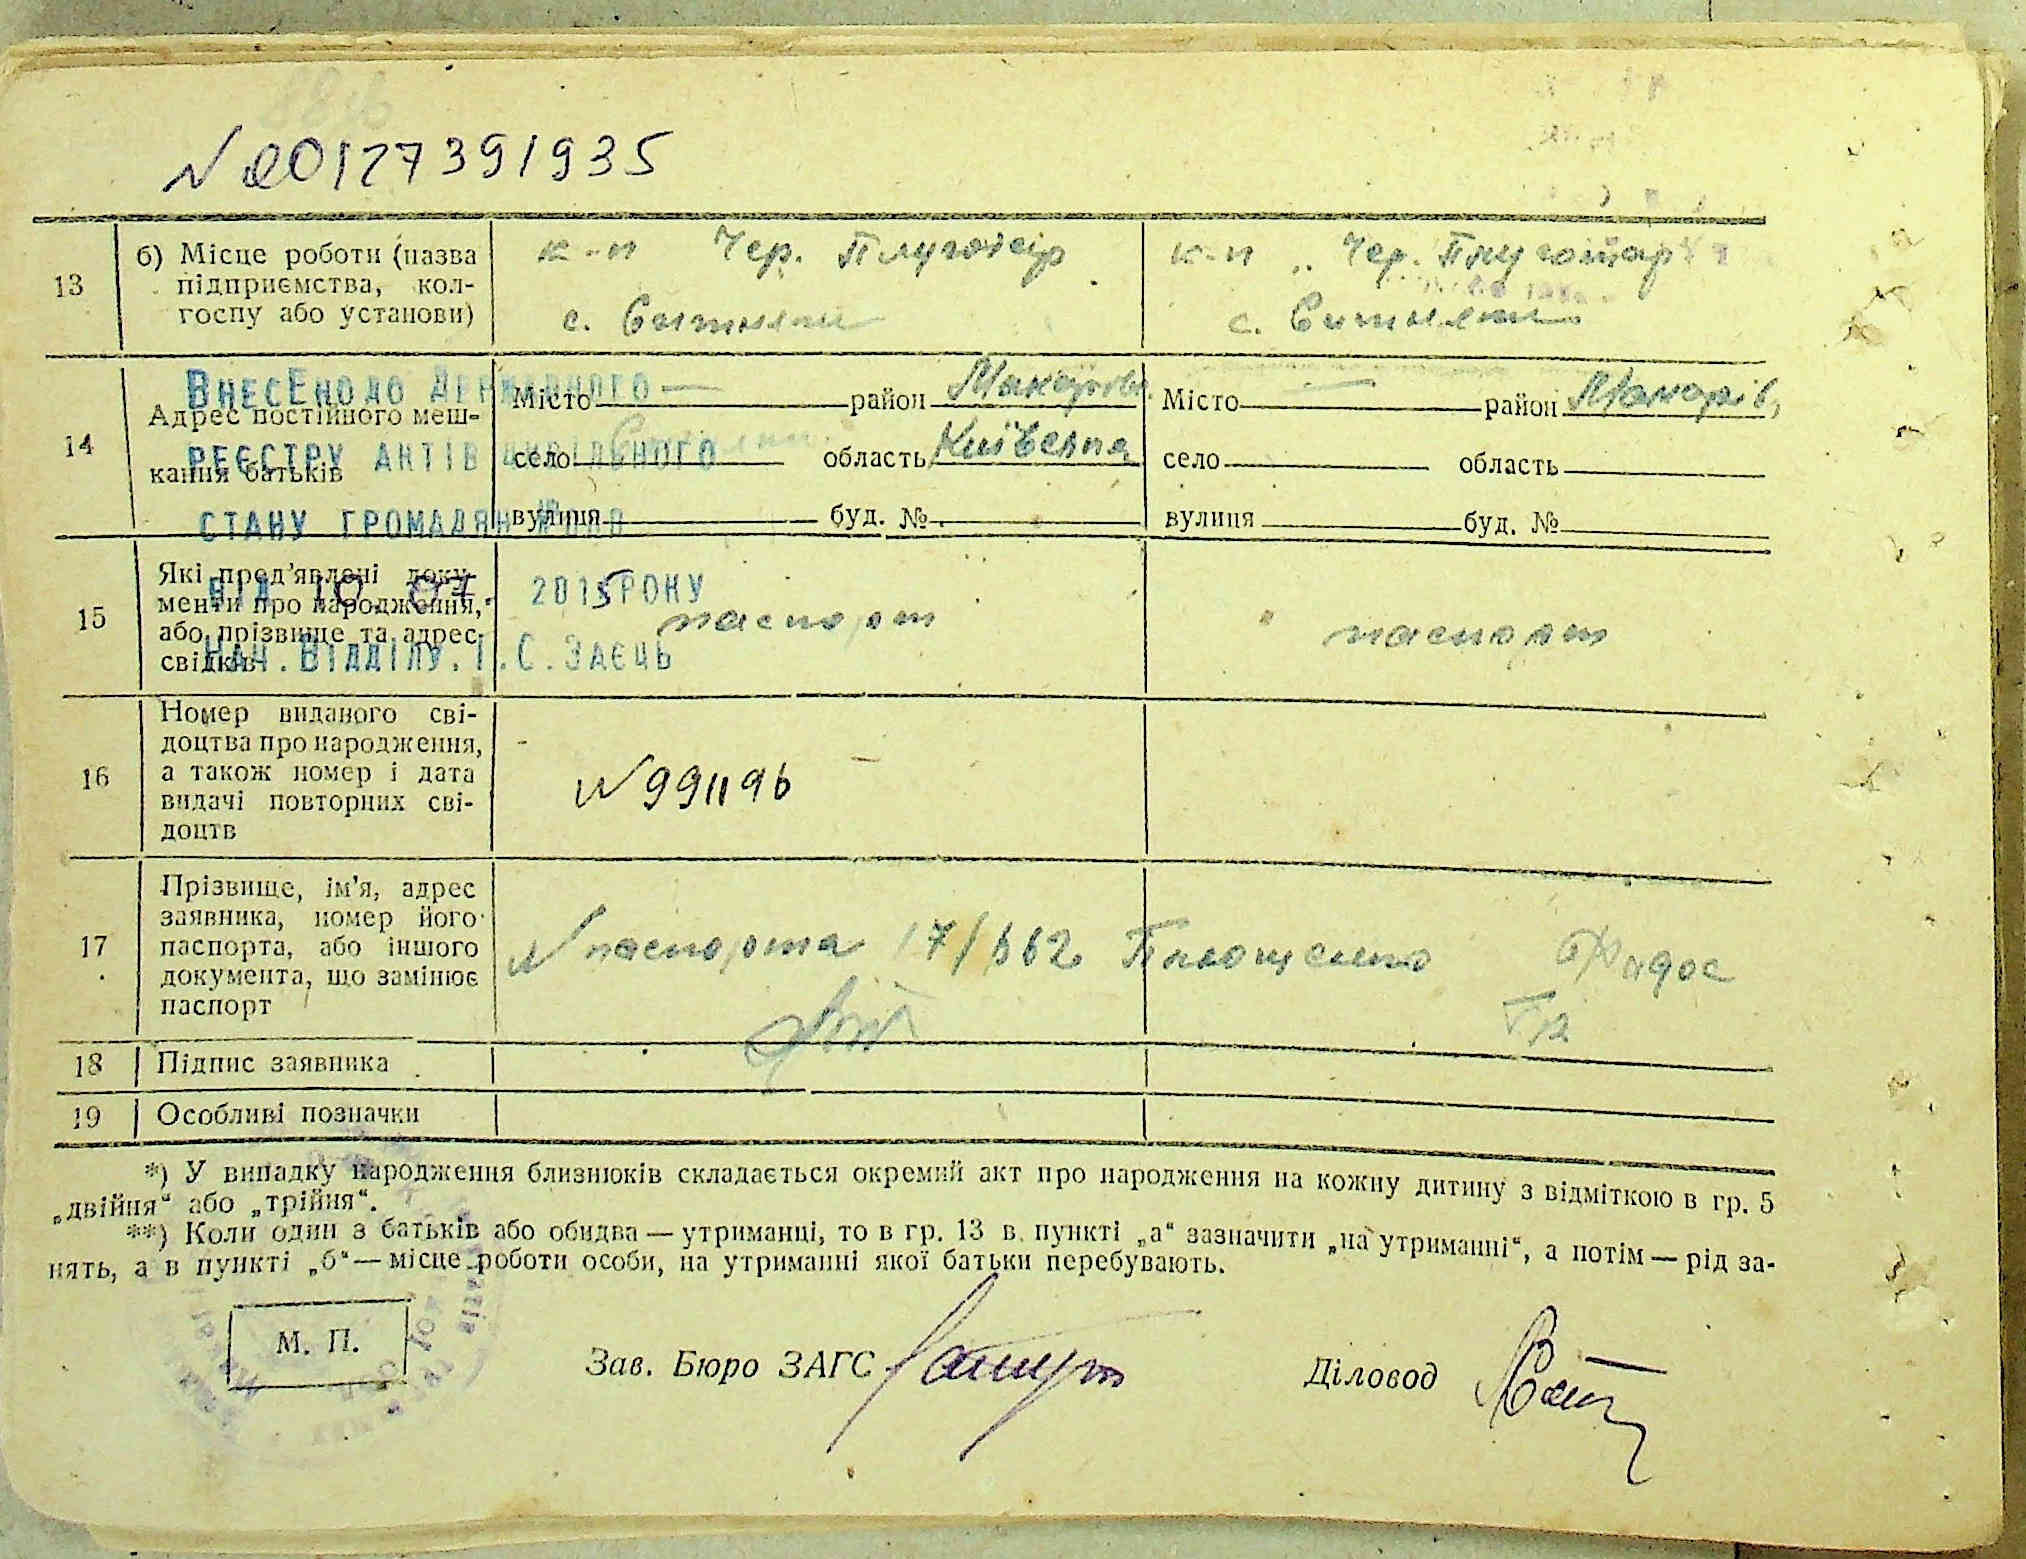 № 00127391935
13
б) Місце роботи (назва
підприємства, кол-
госпу або установи)
к-п Чер. Плугатар
с. Ситняки
к-п „ Чер. Плугатар
с. Ситняки
ВНЕСЕНО ДО ДЕРЖАВНОГО
РЕЄСТРУ АКТІВ ЦИВІЛЬНОГО
СТАНУ ГРОМАДЯН
ВІД 10. 07. 2015 РОКУ
НАЧ. ВІДДІЛУ. І.С. ЗАЄЦЬ
14
Адрес постійного меш-
кання батьків
Місто — район Макарів.
село Ситняки область Київська
вулиця буд. №
Місто — район Макарів,
село область
вулиця буд. №
15
Які пред'явлені доку-
менти про народження,
або прізвище та адрес
свідків
паспорт
паспорт
16
Номер виданого сві-
доцтва про народження,
а також номер і дата
видачі повторних сві-
доцтв
№ 991196
17
Прізвище, ім'я, адрес
заявника, номер його
паспорта, або іншого
документа, що замінює
паспорт
№ паспорта 17/662
18
Підпис заявника
19
Особливі позначки
*) У випадку народження близнюків складається окремий акт про народження на кожну дитину з відміткою в гр. 5
„двійня“ або „трійня“.
**) Коли один з батьків або обидва — утриманці, то в гр. 13 в пункті „а“ зазначити „на утриманні“, а потім — рід за-
нять, а в пункті „б“ — місце роботи особи, на утриманні якої батьки перебувають.
М. П.
Зав. Бюро ЗАГС
Діловод